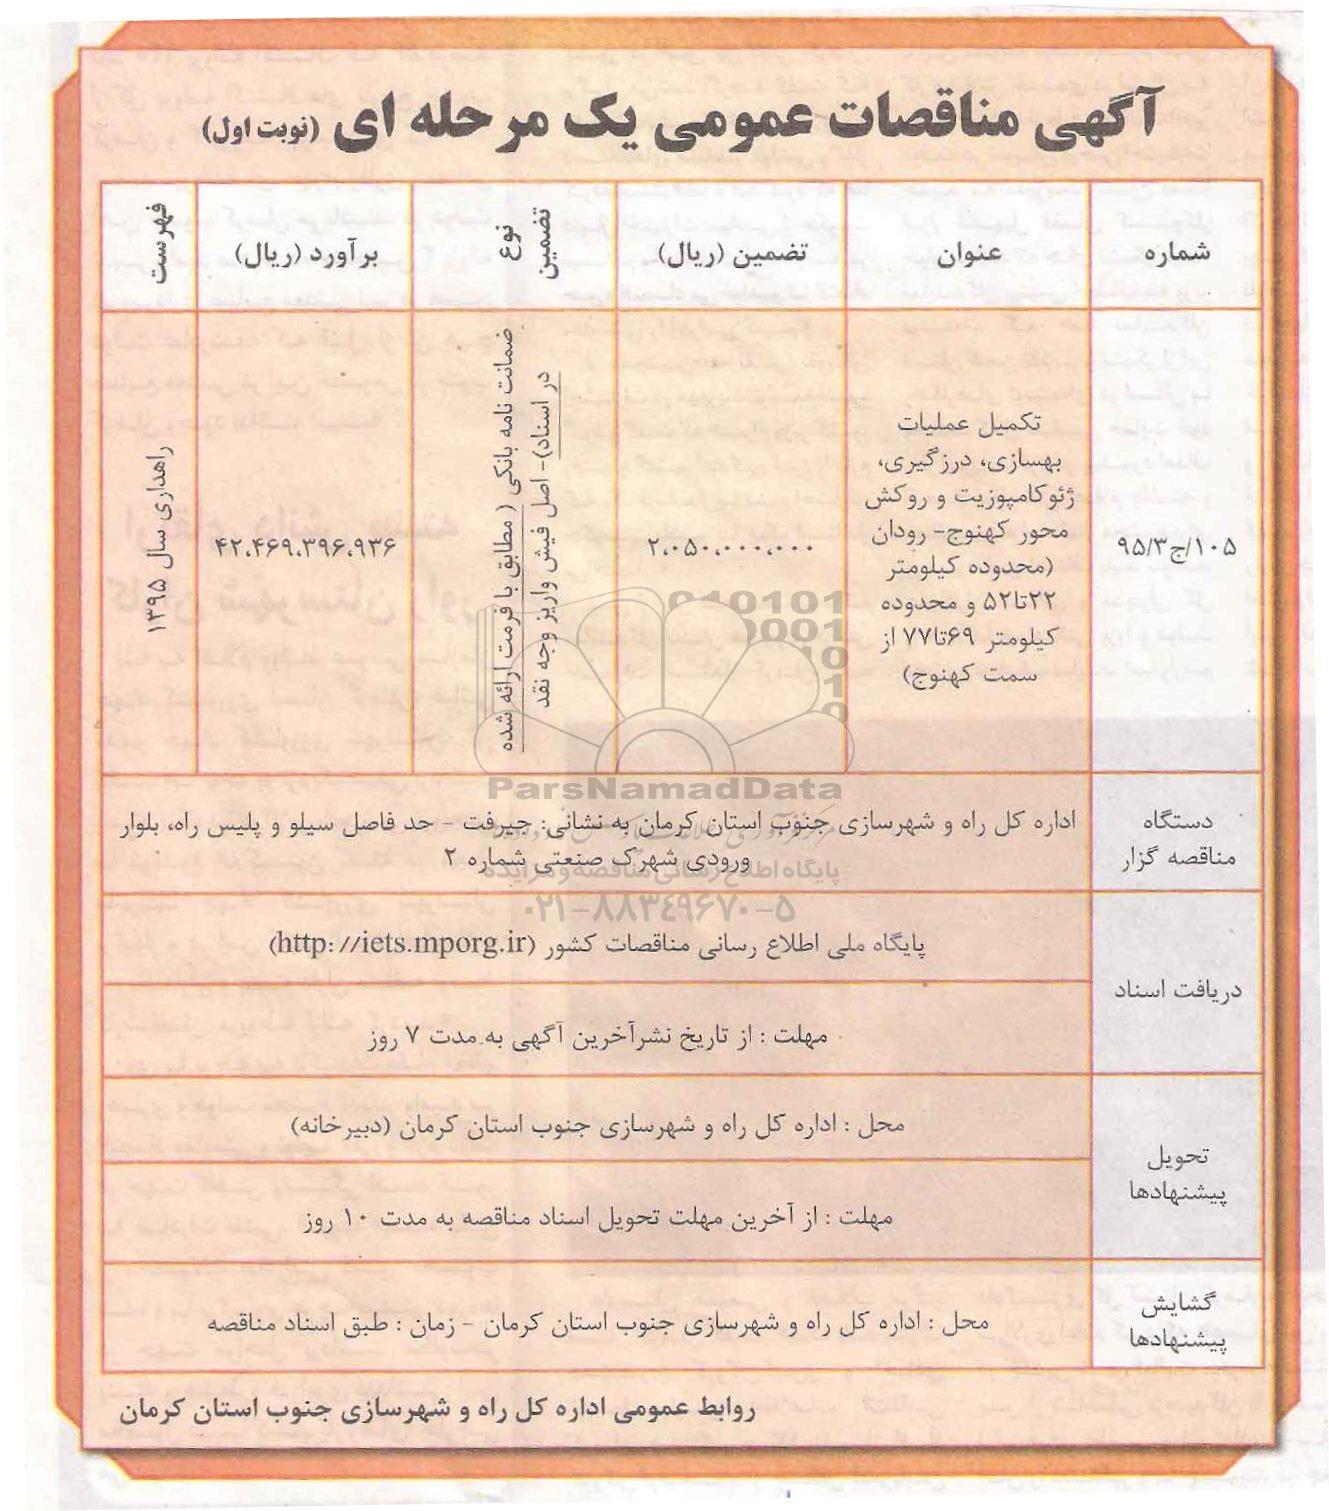 آگهی مناقصات عمومی یک مرحله ای (نوبت اول)
شماره
عنوان
تضمین (ریال)
نوع
تضمین
برآورد (ریال)
فهرست
۱۰۵/ج۹۵/۳
تکمیل عملیات
بهسازی، درزگیری،
ژئوکامپوزیت و روکش
محور کهنوج- رودان
(محدوده کیلومتر
۲۲تا۵۲ و محدوده
کیلومتر ۶۹تا۷۷ از
سمت کهنوج)
۲،۰۵۰،۰۰۰،۰۰۰
ضمانت نامه بانکی ( مطابق با فرمت ارائه شده
در اسناد)- اصل فیش واریز وجه نقد
۴۲،۴۶۹،۳۹۶،۹۳۶
راهداری سال ۱۳۹۵
دستگاه
مناقصه گزار
اداره کل راه و شهرسازی جنوب استان کرمان به نشانی: جیرفت - حد فاصل سیلو و پلیس راه، بلوار
ورودی شهرک صنعتی شماره ۲
ParsNamadData
پایگاه اطلاع رسانی مناقصه و مزایده
۰۲۱-۸۸۳۴۹۶۷۰-۵
دریافت اسناد
پایگاه ملی اطلاع رسانی مناقصات کشور (http://iets.mporg.ir)
مهلت : از تاریخ نشرآخرین آگهی به مدت ۷ روز
تحویل
پیشنهادها
محل : اداره کل راه و شهرسازی جنوب استان کرمان (دبیرخانه)
مهلت : از آخرین مهلت تحویل اسناد مناقصه به مدت ۱۰ روز
گشایش
پیشنهادها
محل : اداره کل راه و شهرسازی جنوب استان کرمان - زمان : طبق اسناد مناقصه
روابط عمومی اداره کل راه و شهرسازی جنوب استان کرمان